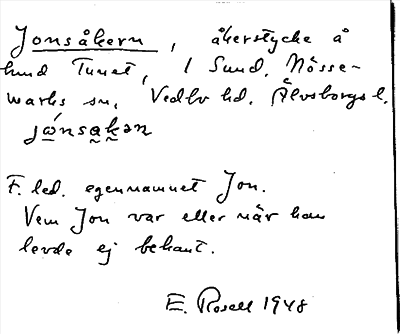 Jonsåkern, åkerstycke å
hmd Tunet, 1 Sund, Nösse-
marks sn, Vedbo hd, Älvsborgs l.
jɷ̀nsa̰kən
F. led. egennamnet Jon.
Vem Jon var eller när han
levde ej bekant.
E. Rosell 1948